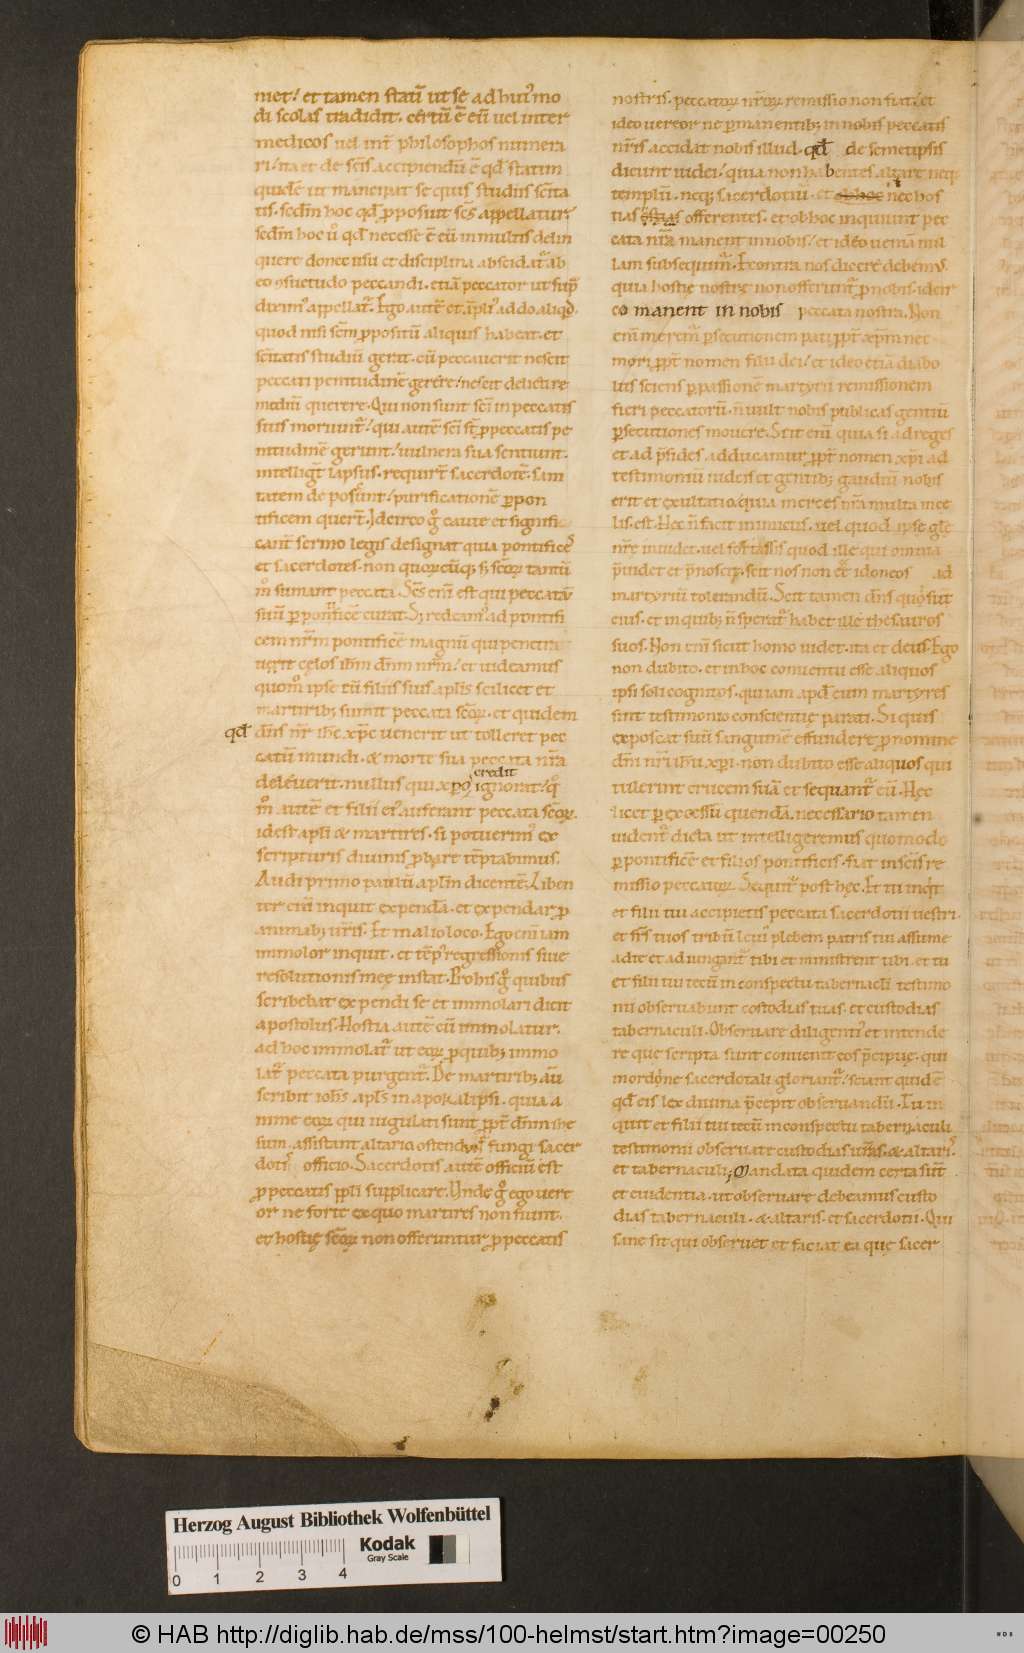 met! et tamen statī ut se ad huiꝰmo
di scolas tradidit. certū ē eū uel inter
medicos uel int̄ philosophos numera
ri! ita et de sc̄is accipiendū ē qd̄ statim
ut mancipat se quis studiis sc̄ita
tis. sed in hoc qd̄ p̲posuit sc̄s appellatur!
sed in hoc u̾o qd̄ necesse ē eū in multis delin
quere donec usu et disciplina abscidat᷑ ab
eo ꝯsuetudo peccandi. etiā peccator ut sup̲
diximꝰ appellat᷑. Ego autē et āpliꝰ addo aliqd.
quod nisi sc̄m p̲positū aliquis habeat. et
sc̄itatis studiū gerat. cū peccauerit nescit
peccati penitudinē gerere! nescit delicti re
mediū querere. Qui non sunt sc̄i in peccatis
suis moriunt᷑! qui autē sc̄i st̄ p̲ peccatis pe
nitudinē gerunt! uulnera sua sentiunt.
intelligt̄ lapsus. requirt̄ sacerdotē. sani
tatem de poscunt! purificationē p̲ pon
tificem quert̄. Idcirco g̊ caute et signifi
cant̄ sermo legis designat quia pontifices
et sacerdotes. non quorūcūq; sꝫ sc̄orꝝ tantū
m̊ sumant peccata. Sc̄s em̄ est qui peccatū
suū p̲ pontificē curat. Sꝫ redeamꝰ ad pontifi
cem nr̄m pontificē magnū qui penetra
uerit cęlos ih̄m dn̄m nr̄m! et uideamus
quom̊ ipse cū filiis suis apl̄is scilicet et
martiribꝫ sumit peccata sc̄orꝝ. et quidem
qd̄ dn̄s nr̄ ih̄c xp̄c uenerit ut tolleret pec
catū mundi. & morte sua peccata nr̄a
deleuerit. nullus qui xp̄o credit ignorat! q̊
m̊ autē et filii eiꝰ auferant peccata sc̄orꝝ.
id est apl̄i & martires. si potuerimꝰ ex
scripturis diuinis p̲bare tēptabimus.
Audi primo paulū apl̄m dicentē. Liben
ter em̄ inquit expendā. et expendar p̲
animabꝫ ur̄is. Et in alio loco. Ego em̄ iam
immolor inquit. et tēpꝰ regressionis siue
resolutionis meę instat. Pro his g̊ quibus
scribebat expendi se et immolari dicit
apostolus. Hostia autē cū immolatur.
ad hoc immolat᷑ ut eorꝝ p̲ quibꝫ immo
lat᷑ peccata purgent᷑. De martiribꝫ aū
scribit ioh̄s apl̄s in apokalipsi. quia a
nime eorꝝ qui iugulati sunt p̲pt̄ dn̄m ihe
sum. assistant altario fungi sacer
dotꝰ officio. Sacerdotis autē officiū est
p̲ peccatis pp̄li supplicare. Unde g̊ ego uere
or ne forte ex quo martires non fiunt.
et hostię sc̄orꝝ non offeruntur p̲ peccatis
nostris. peccatorꝝ nr̄orꝝ remissio non fiat! et
ideo uereor ne p̲manentibꝫ in nobis peccatis
nr̄is accidat nobis illud. qd̄ de semetipsis
dicunt iudei! quia non habentes altare neq;
templū. neq; sacerdotiū. et ob hoc nec hos
tias offerentes. et ob hoc inquiunt pec
cata nr̄a manent in nobis! et ideo uenia nul
lam subsequim᷑. Econtra nos dicere debemꝰ.
quia hostię nostrę non offerunt᷑ p̲ nobis. idcir
co manent in nobis peccata nostra. Non
em̄ merem᷑ p̲secutionem pati p̲pt̄ xp̄m nec
mori p̲pt̄ nomen filii dei! et ideo etiā diabo
lus sciens p̲ passionē martyrii remissionem
fieri peccatorū. n̄ uult nobis publicas gentiū
p̲secutiones mouere. Scit em̄ quia si ad reges
et ad p̄sides adducamur p̲pt̄ nomen xp̄i ad
testimoniū iudeis et gentibꝫ gaudiū nobis
erit et exultatio. quia merces nr̄a multa in cę
lis. est. Hęc n̄ facit inimicus. uel quod ipse glę
nr̄ę inuidet. uel fortassis quod ille qui omnia
p̄uidet et p̄noscit. scit nos non ēē idoneos ad
martyriū tolerandū. Scit tamen dn̄s quo sit
eius. et in quibꝫ n̄ sperat᷑ habet ille thesauros
suos. Non em̄ sicut homo uidet. ita et deus. Ego
non dubito. et in hoc conuentu esse aliquos
ipsi soli cognitos. qui iam apd̄ eum martyres
sint testimonio conscientię parati. Si quis
exposcat suū sanguinē effundere p̲ nomine
dn̄i nr̄i ih̄u xp̄i. non dubito esse aliquos qui
tulerint crucem suā et sequant᷑ eū. Hęc
licet p̲ excessū quendā. necessario tamen
uident᷑ dicta ut intelligeremus quomodo
p̲ pontificē et filios pontificis. fiat in sc̄is re
missio peccatorꝝ. Sequit᷑ post hęc. Et tu inqt
et filii tui accipietis peccata sacerdotii uestri.
et frs̄ tuos tribū leui plebem patris tui assume
ad te et adiungant᷑ tibi et ministrent tibi. et tu
et filii tui tecū in conspectu tabernacli testimo
nii obseruabunt costodias tuas. et custodias
tabernaculi. Obseruare diligentꝰ et intende
re quę scripta sunt conuenit eos p̄cipuę. qui
in ordine sacerdotali gloriant᷑! sciant quidē
qd̄ eis lex diuina p̄cepit obseruandū. Tu in
quit et filii tui tecū in conspectu tabernaculi
testimonii obseruate custodias ur̄as. & altarꝰ.
et tabernaculi; Mandata quidem certa sūt
et euidentia. ut obseruare debeamus custo
dias tabernaculi. & altaris. et sacerdotii. Qui
sane sit qui obseruet et faciat ea quę sacer
Herzog August Bibliothek Wolfenbüttel
Kodak
Gray Scale
0 1 2 3 4
© HAB http://diglib.hab.de/mss/100-helmst/start.htm?image=00250